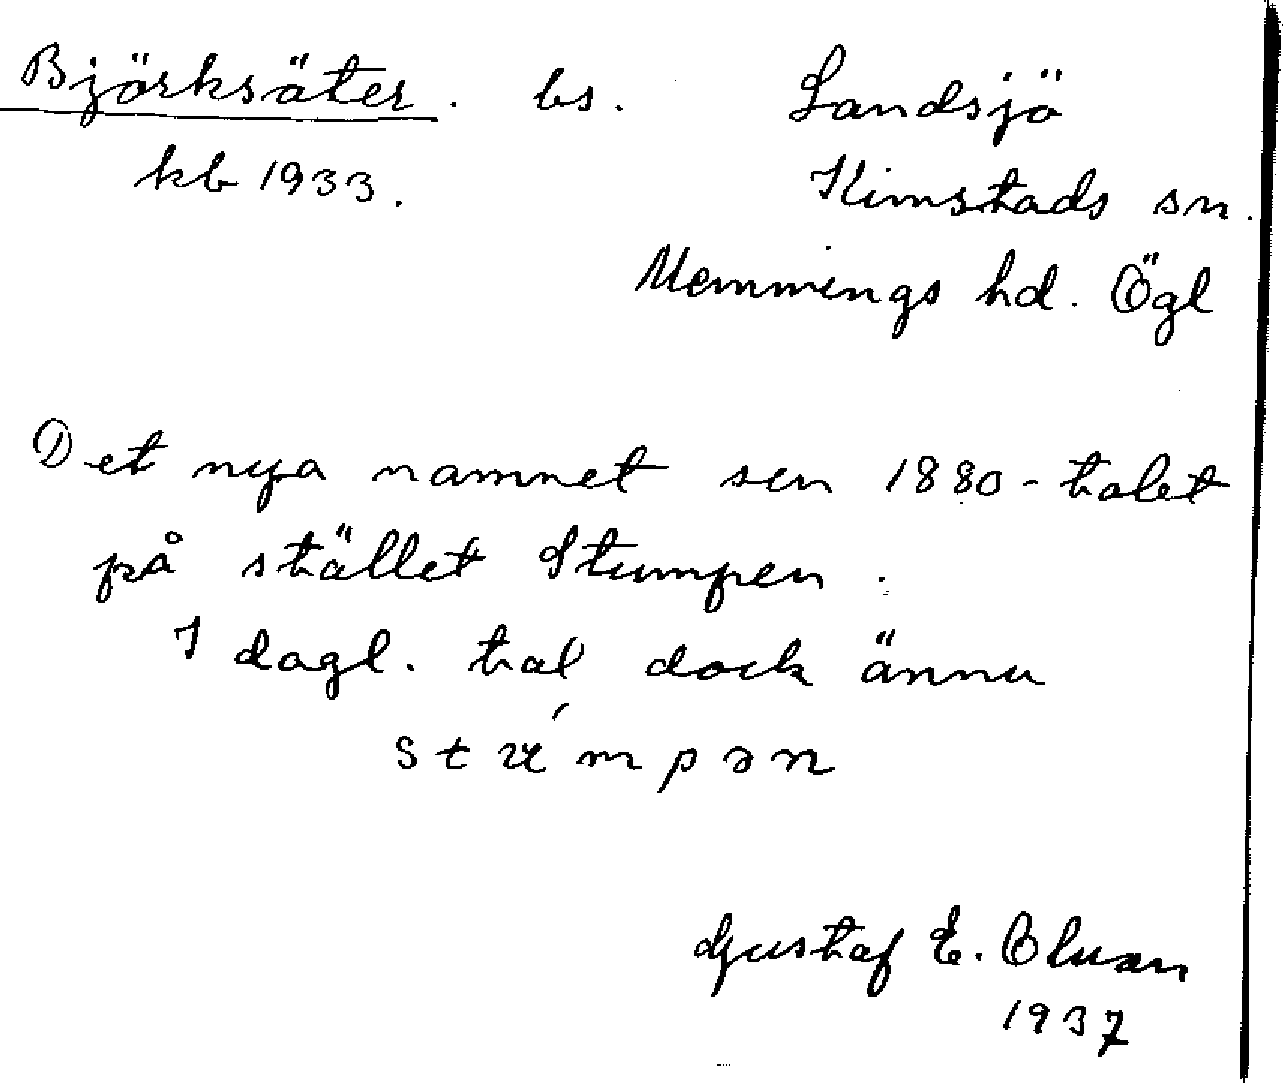 Björksäter. bs. Landsjö
kb 1933. Kimstads sn.
Memmings hd. Ögl
Det nya namnet sen 1880-talet
på stället Stumpen.
I dagl. tal dock ännu
Gustaf E. Olsson
1937